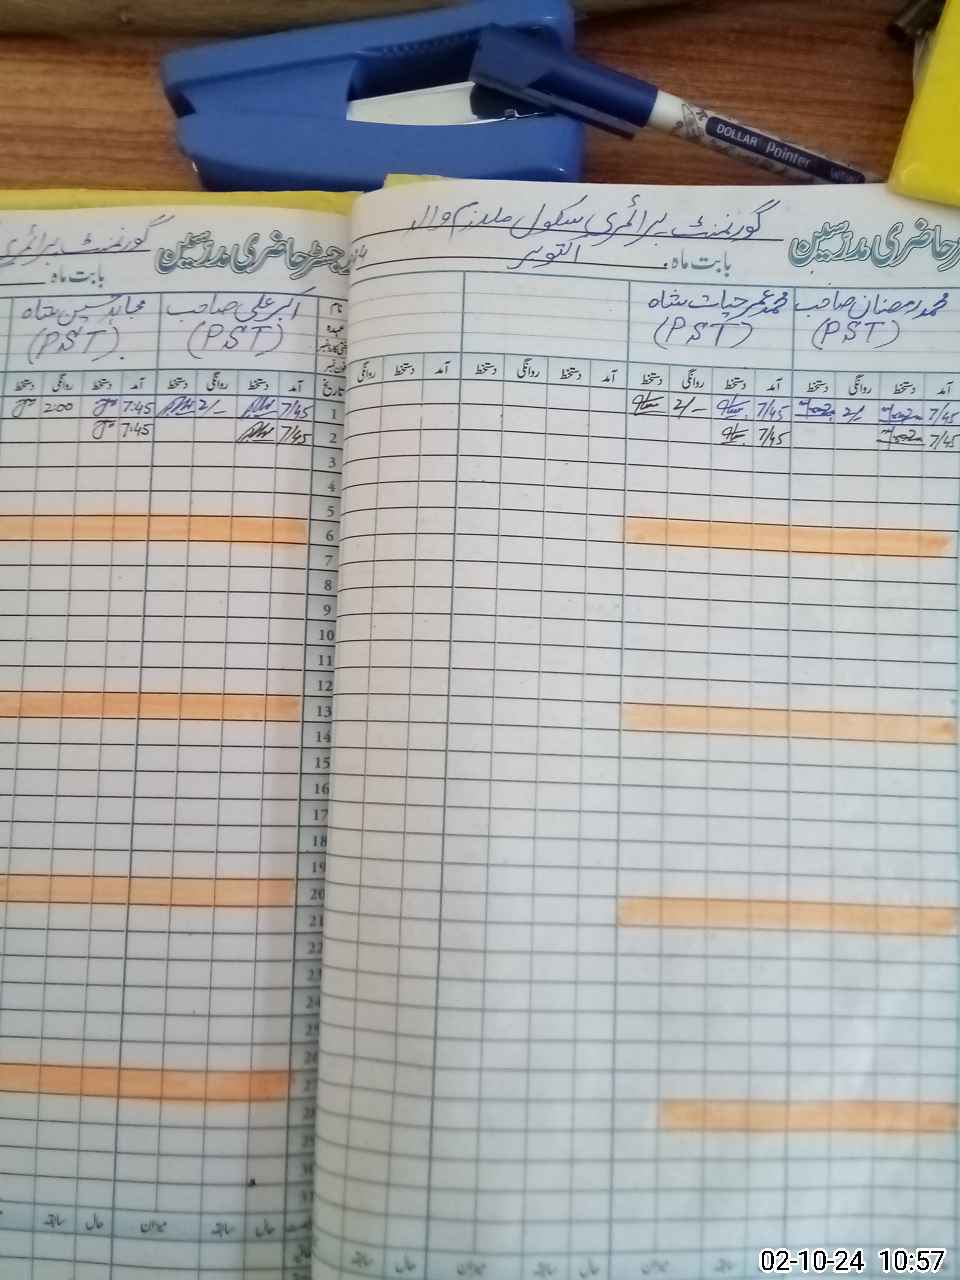 DOLLAR Pointer
گورنمنٹ پرائمری سکول ملازم والہ
حاضری مدرسین
بابت ماہ اکتوبر
محمد رمضان صاحب
محمد عمر حیات شاہ
(PST)
(PST)
آمد دستخط روانگی دستخط آمد دستخط روانگی دستخط آمد دستخط روانگی دستخط آمد دستخط روانگی
7/45 2/- 7/45 2/-
7/45 7/45
رجسٹر حاضری مدرسین
گورنمنٹ پرائمری
بابت ماہ
نام
عہدہ
اکبر علی صاحب
مجاہد حسین شاہ
(PST)
(PST)
تاریخ آمد دستخط روانگی دستخط آمد دستخط روانگی دستخط
1 7/45 2/- 7:45 2:00
2 7/45 7:45
3
4
5
6
7
8
9
10
11
12
13
14
15
16
17
18
19
20
21
22
23
24
25
26
27
28
29
30
31
حال سابقہ میزان حال سابقہ
02-10-24 10:57